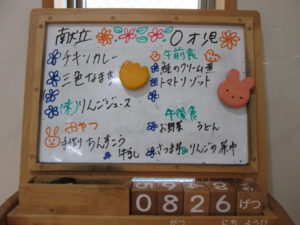 献立
チキンカレー
三色なます
りんごジュース
おやつ
手作りちんすこう
牛乳
0才児
午前食
鮭のクリーム煮
トマトリゾット
午後食
お野菜 うどん
さつま芋とりんごの
0826 げつ
がつ にち ようび